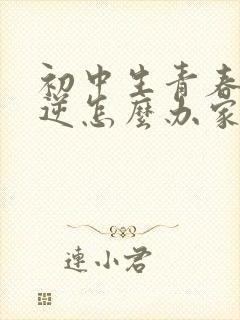 初中生青春
逆怎麼办家
連小君